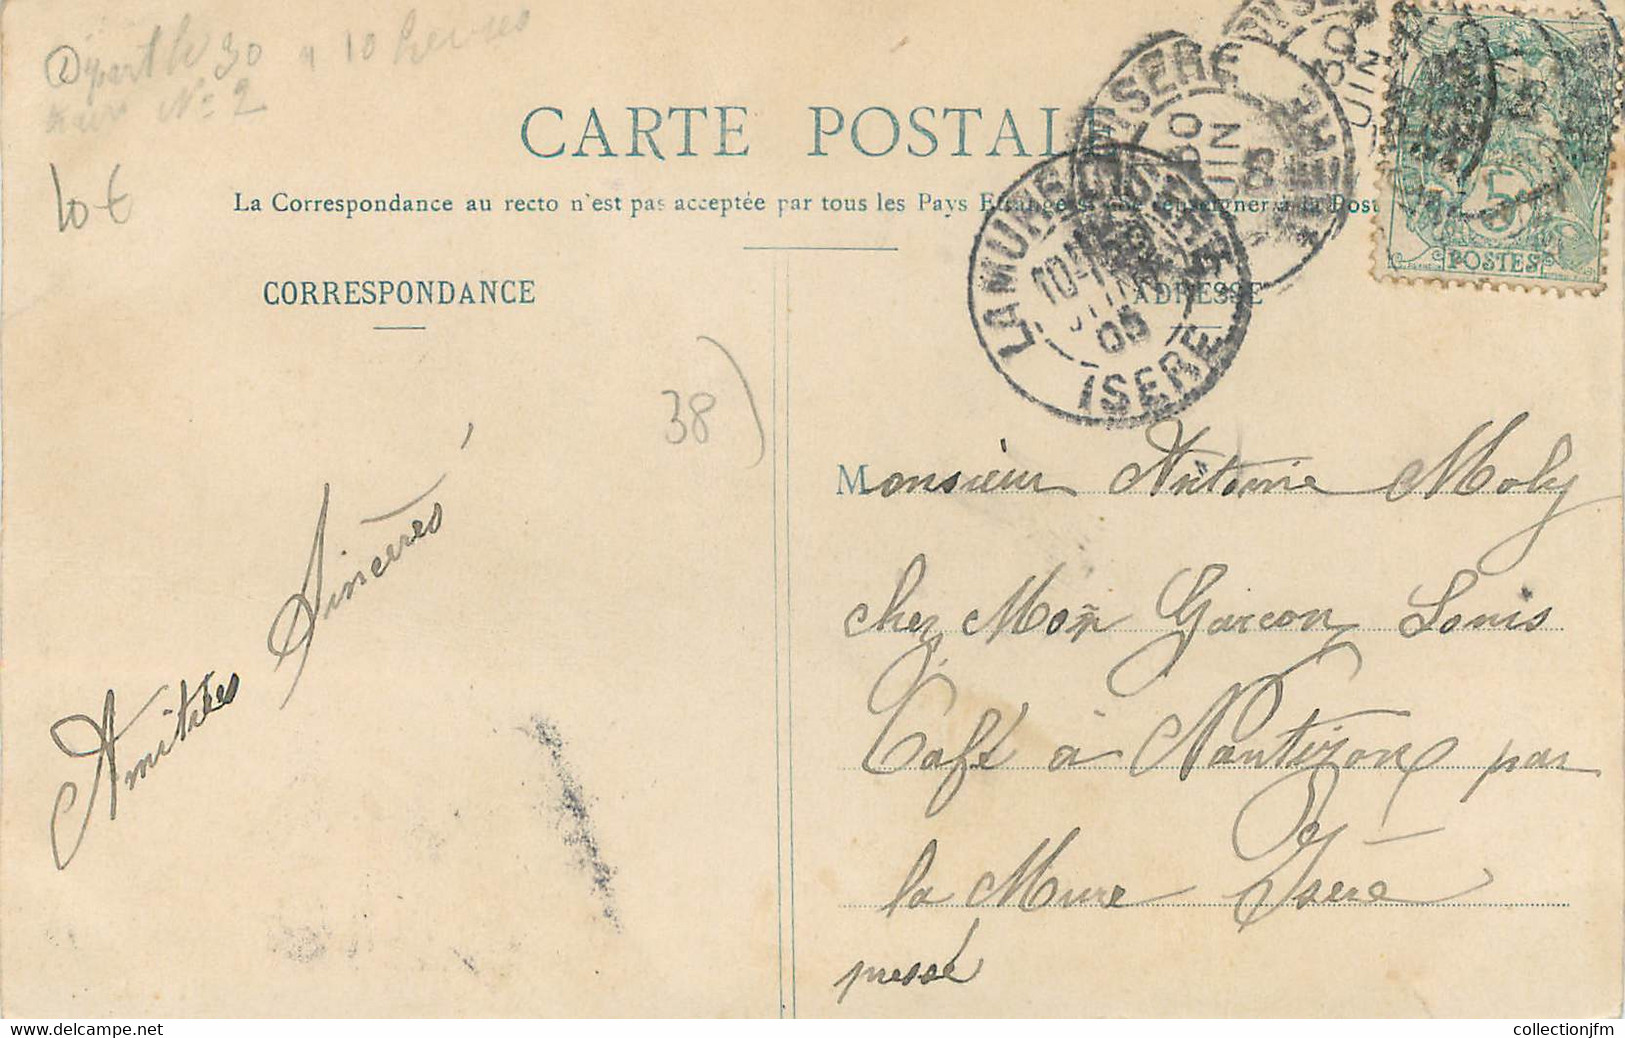 Départ le 30 a 10 heures
No 2
10 €
CARTE POSTALE
La Correspondance au recto n'est pas acceptée par tous les Pays
CORRESPONDANCE
ADRESSE
LA MURE
ISERE
10
JUIN
08
ISERE
JUIN
JUIN
5
POSTES
38)
Amitiés Sincères
Monsieur Antoine Moly
chez Mon Garcon Louis
Café à Nantizon par
la Mure Isère
pressé
collectionjfm